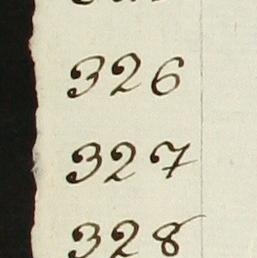 326
327
328